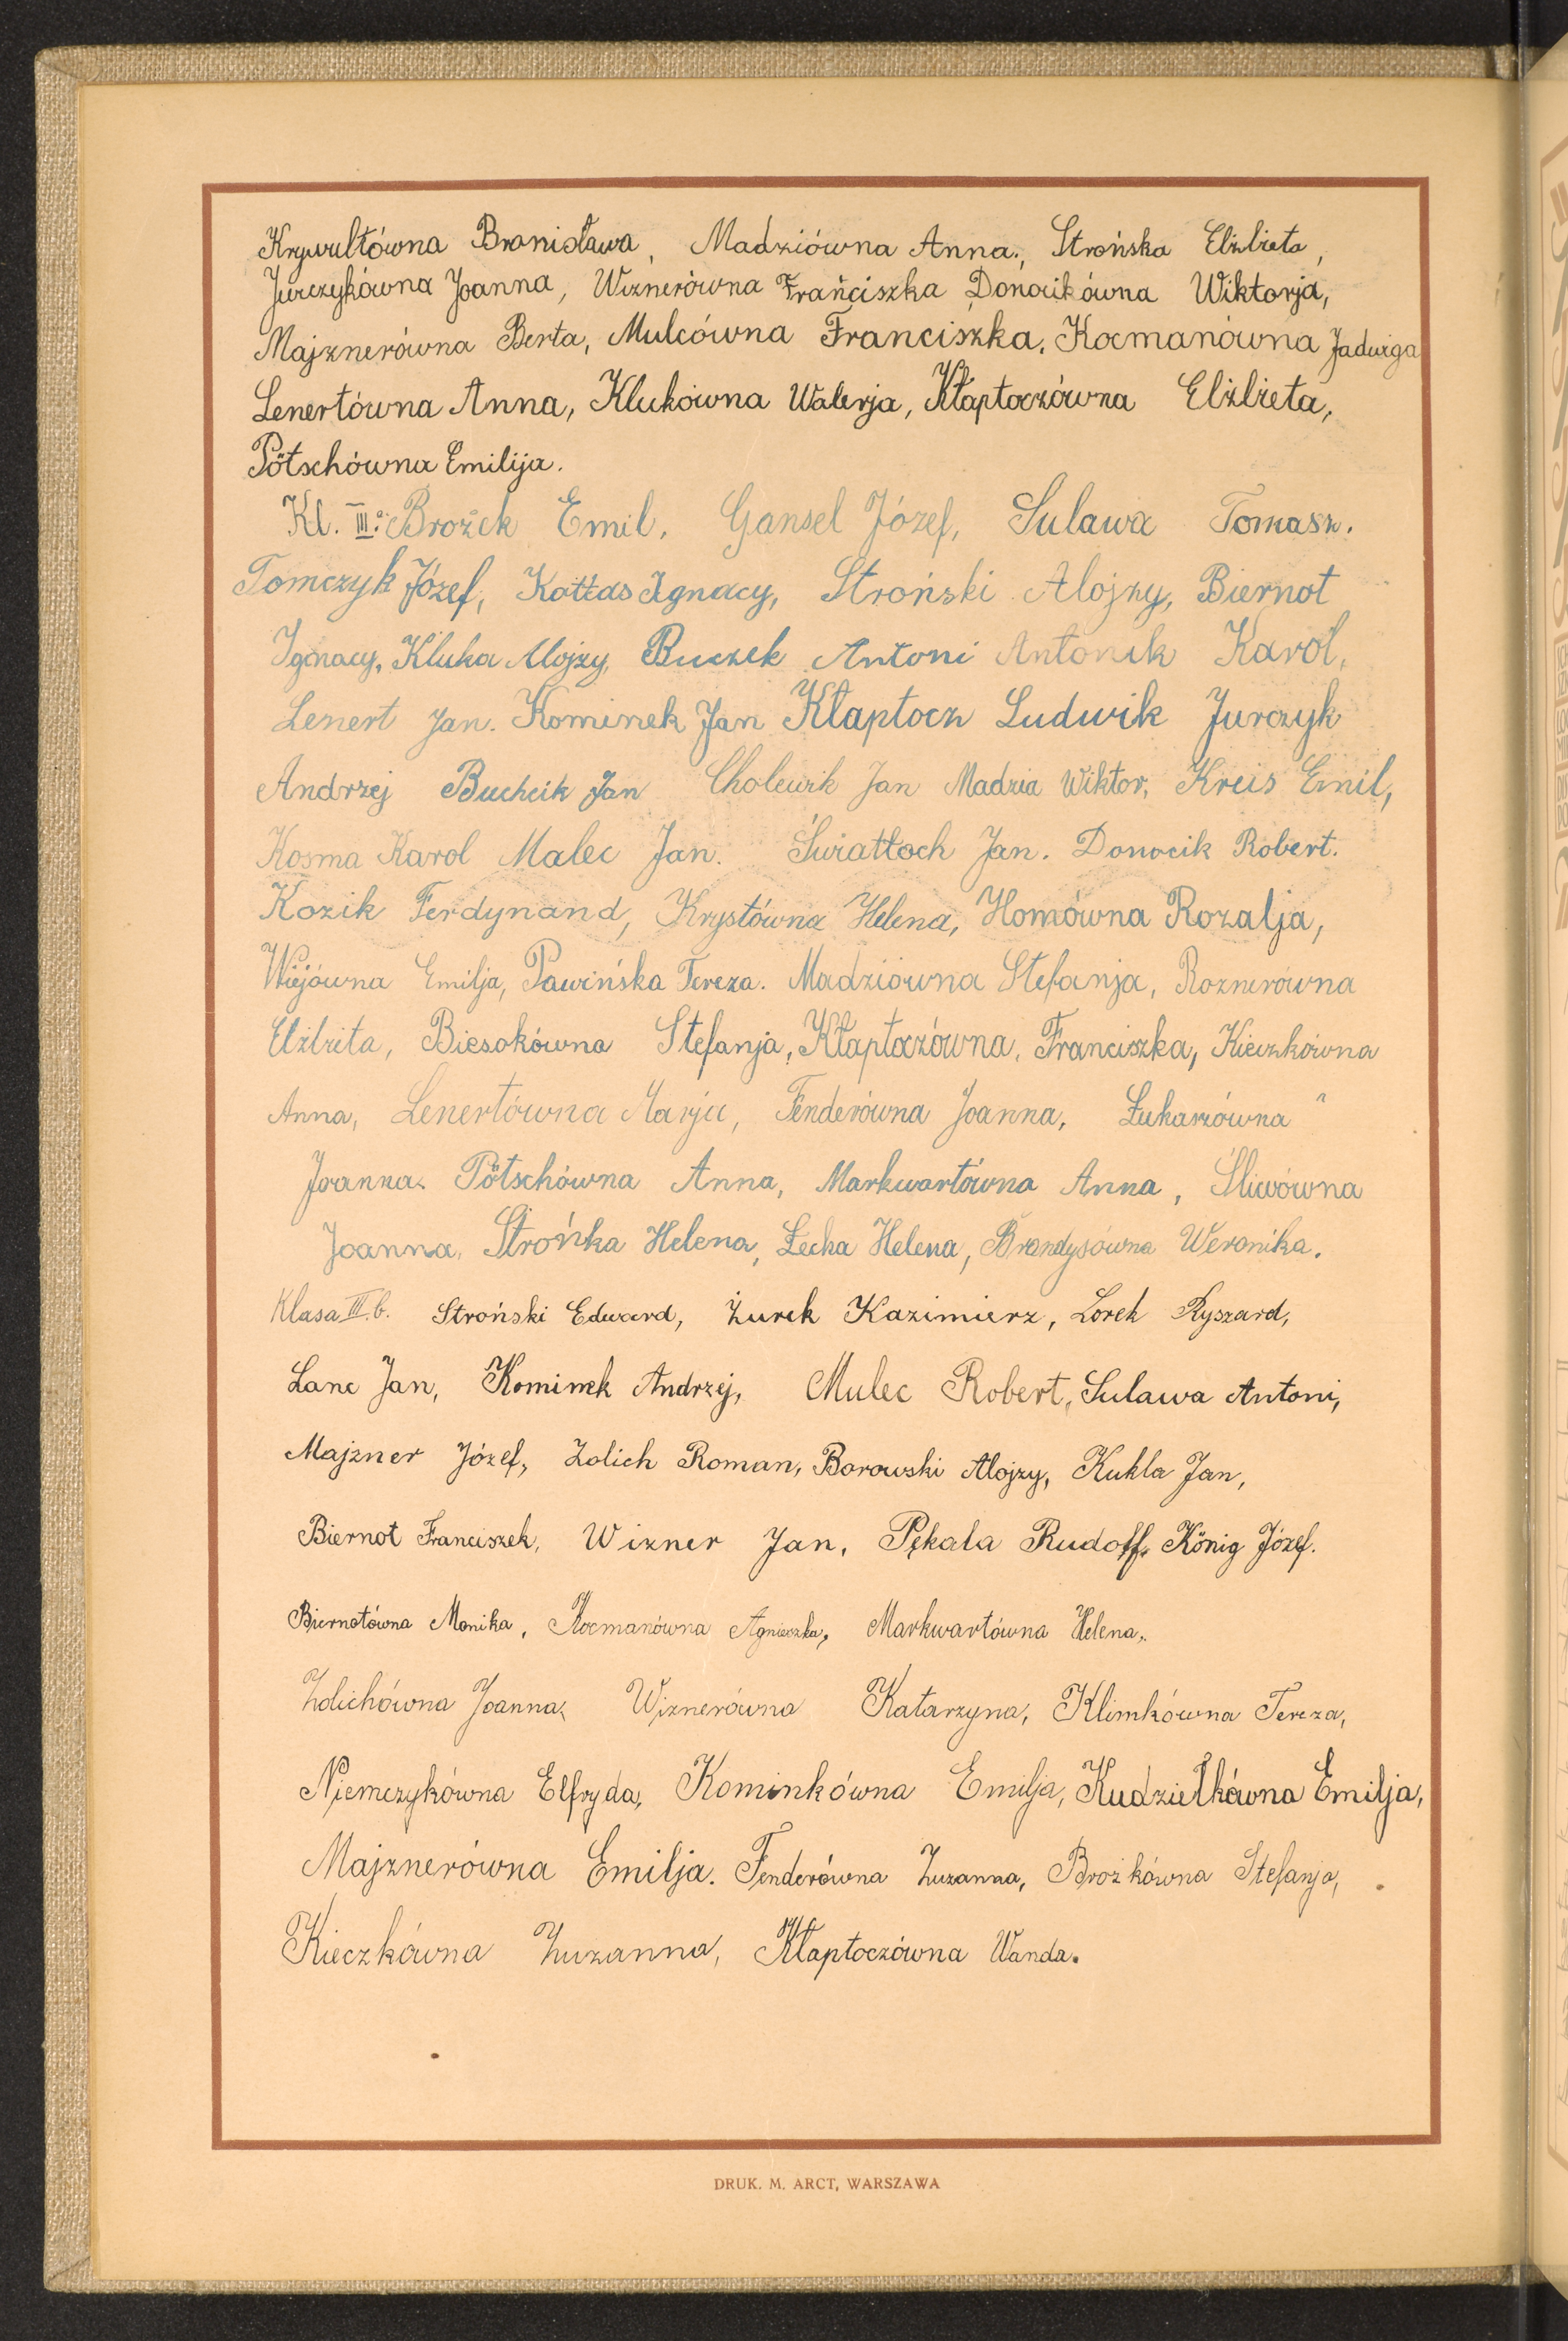 Krywultówna Bronisława, Madziówna Anna, Strońska Elżbieta,
Jurczykówna Joanna, Wiznerówna Franciszka Donocikówna Wiktorja,
Majznerówna Berta, Mulcówna Franciszka, Kocmanówna Jadwiga
Lenertówna Anna, Klukówna Walerja, Kłaptoczówna Elżbieta,
Pötschówna Emilija.
Kl. IIIa: Brożek Emil, Gansel Józef, Sulawa Tomasz.
Tomczyk Józef, Kottas Ignacy, Stroński Alojzy, Biernot
Ignacy, Kluka Alojzy, Buczek Antoni Antonik Karol,
Lenert Jan. Kominek Jan Kłaptocz Ludwik Jurczyk
Andrzej Buchcik Jan Cholewik Jan Madzia Wiktor, Kreis Emil,
Kosma Karol Malec Jan. Światłoch Jan. Donocik Robert.
Kozik Ferdynand, Krystówna Helena, Homówna Rozalja,
Wiejówna Emilja, Pawińska Tereza. Madziówna Stefanja, Roznerówna
Elżbieta, Biesokówna Stefanja, Kłaptoczówna, Franciszka, Kieczkówna
Anna, Lenertówna Marja, Fenderówna Joanna, Łukaszówna
Joanna. Pötschówna Anna, Markwartówna Anna, Śliwówna
Joanna, Strońka Helena, Łecka Helena, Brandysówna Weronika.
Klasa III.b. Stroński Edward, Żurek Kazimierz, Lorek Ryszard,
Lanc Jan, Kominek Andrzej, Mulec Robert, Sulawa Antoni,
Majzner Józef, Zolich Roman, Borowski Alojzy, Kukla Jan,
Biernot Franciszek, Wizner Jan, Pękala Rudolf, König Józef.
Biernotówna Monika, Kocmanówna Agnieszka, Markwartówna Helena,
Zolichówna Joanna, Wiznerówna Katarzyna, Klimkówna Tereza,
Niemczykówna Elfryda, Kominkówna Emilja, Kudziełkówna Emilja,
Majznerówna Emilja. Fenderówna Zuzanna, Brożkówna Stefanja,
Kieczkówna Zuzanna, Kłaptoczówna Wanda.
DRUK. M. ARCT, WARSZAWA